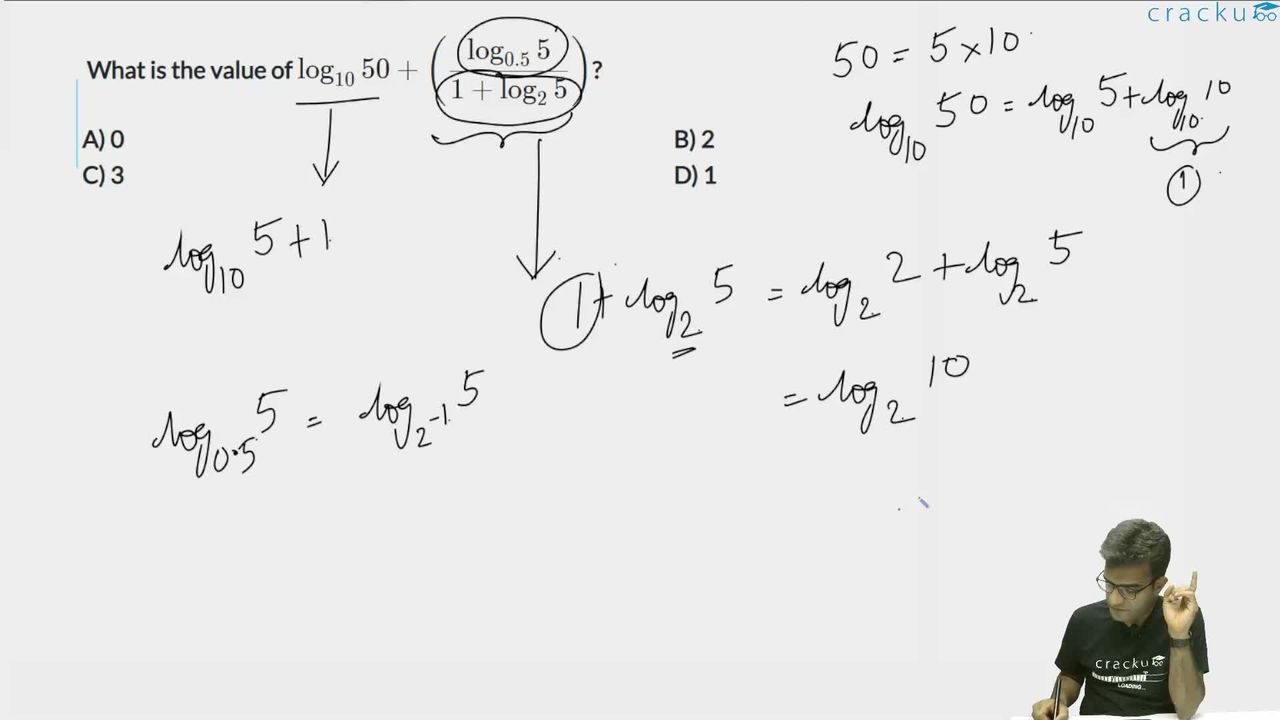 cracku
What is the value of log₁₀ 50 + (log₀.₅ 5 / 1 + log₂ 5)?
A) 0
B) 2
C) 3
D) 1
50 = 5 × 10
log₁₀ 50 = log₁₀ 5 + log₁₀ 10
1
log₁₀ 5 + 1
1 + log₂ 5 = log₂ 2 + log₂ 5
= log₂ 10
log₀.₅ 5 = log₂₋₁ 5
cracku
LOADING...